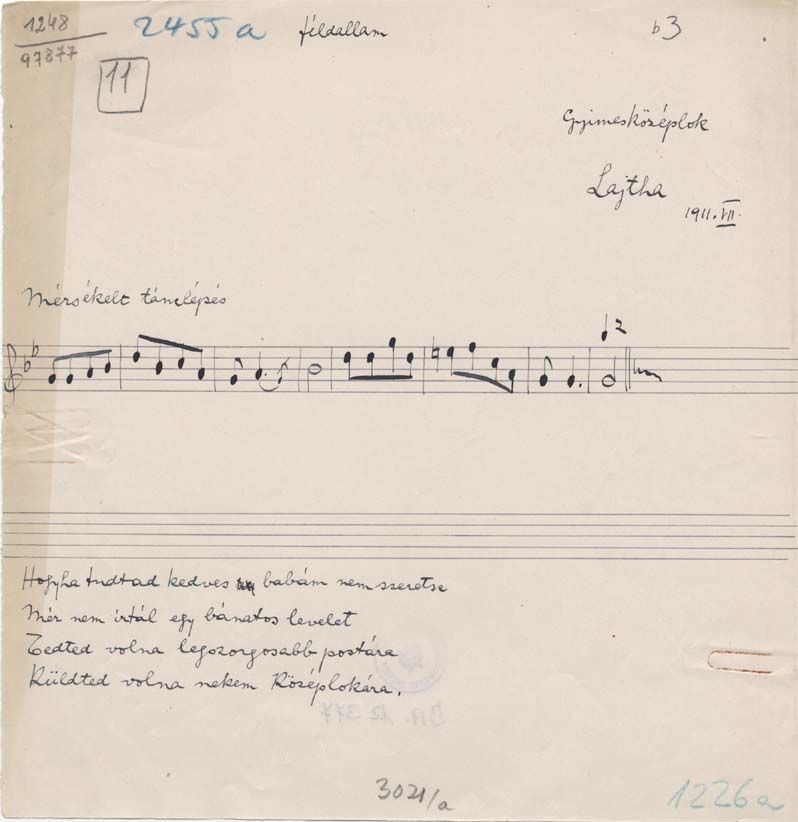 1248
97877
2455a
féldallam
b3
11
Gyimesközéplok
Lajtha
1911. VII.
Mérsékelt tánclépés
2
Hogyha tudtad kedves babám nem szeretsz
Mér nem írtál egy bánatos levelet
Tedted volna legszorgosabb postára
Küldted volna nekem Középlokára.
BR. 12 377
3021/a
1226a